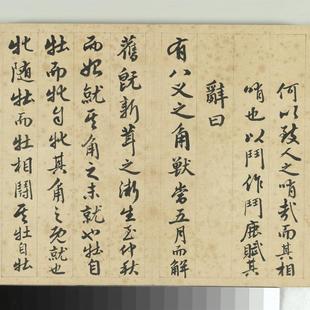 何以致人之哨哉而其相
哨也以鬥作鬥鹿賦其
辭曰
有八叉之角獸常五月而解
舊既新茸之漸生至仲秋
而始就其角之未就也牡自
牡而牝自牝其角之既就也
牝隨牡而牡相鬪其牡自牡